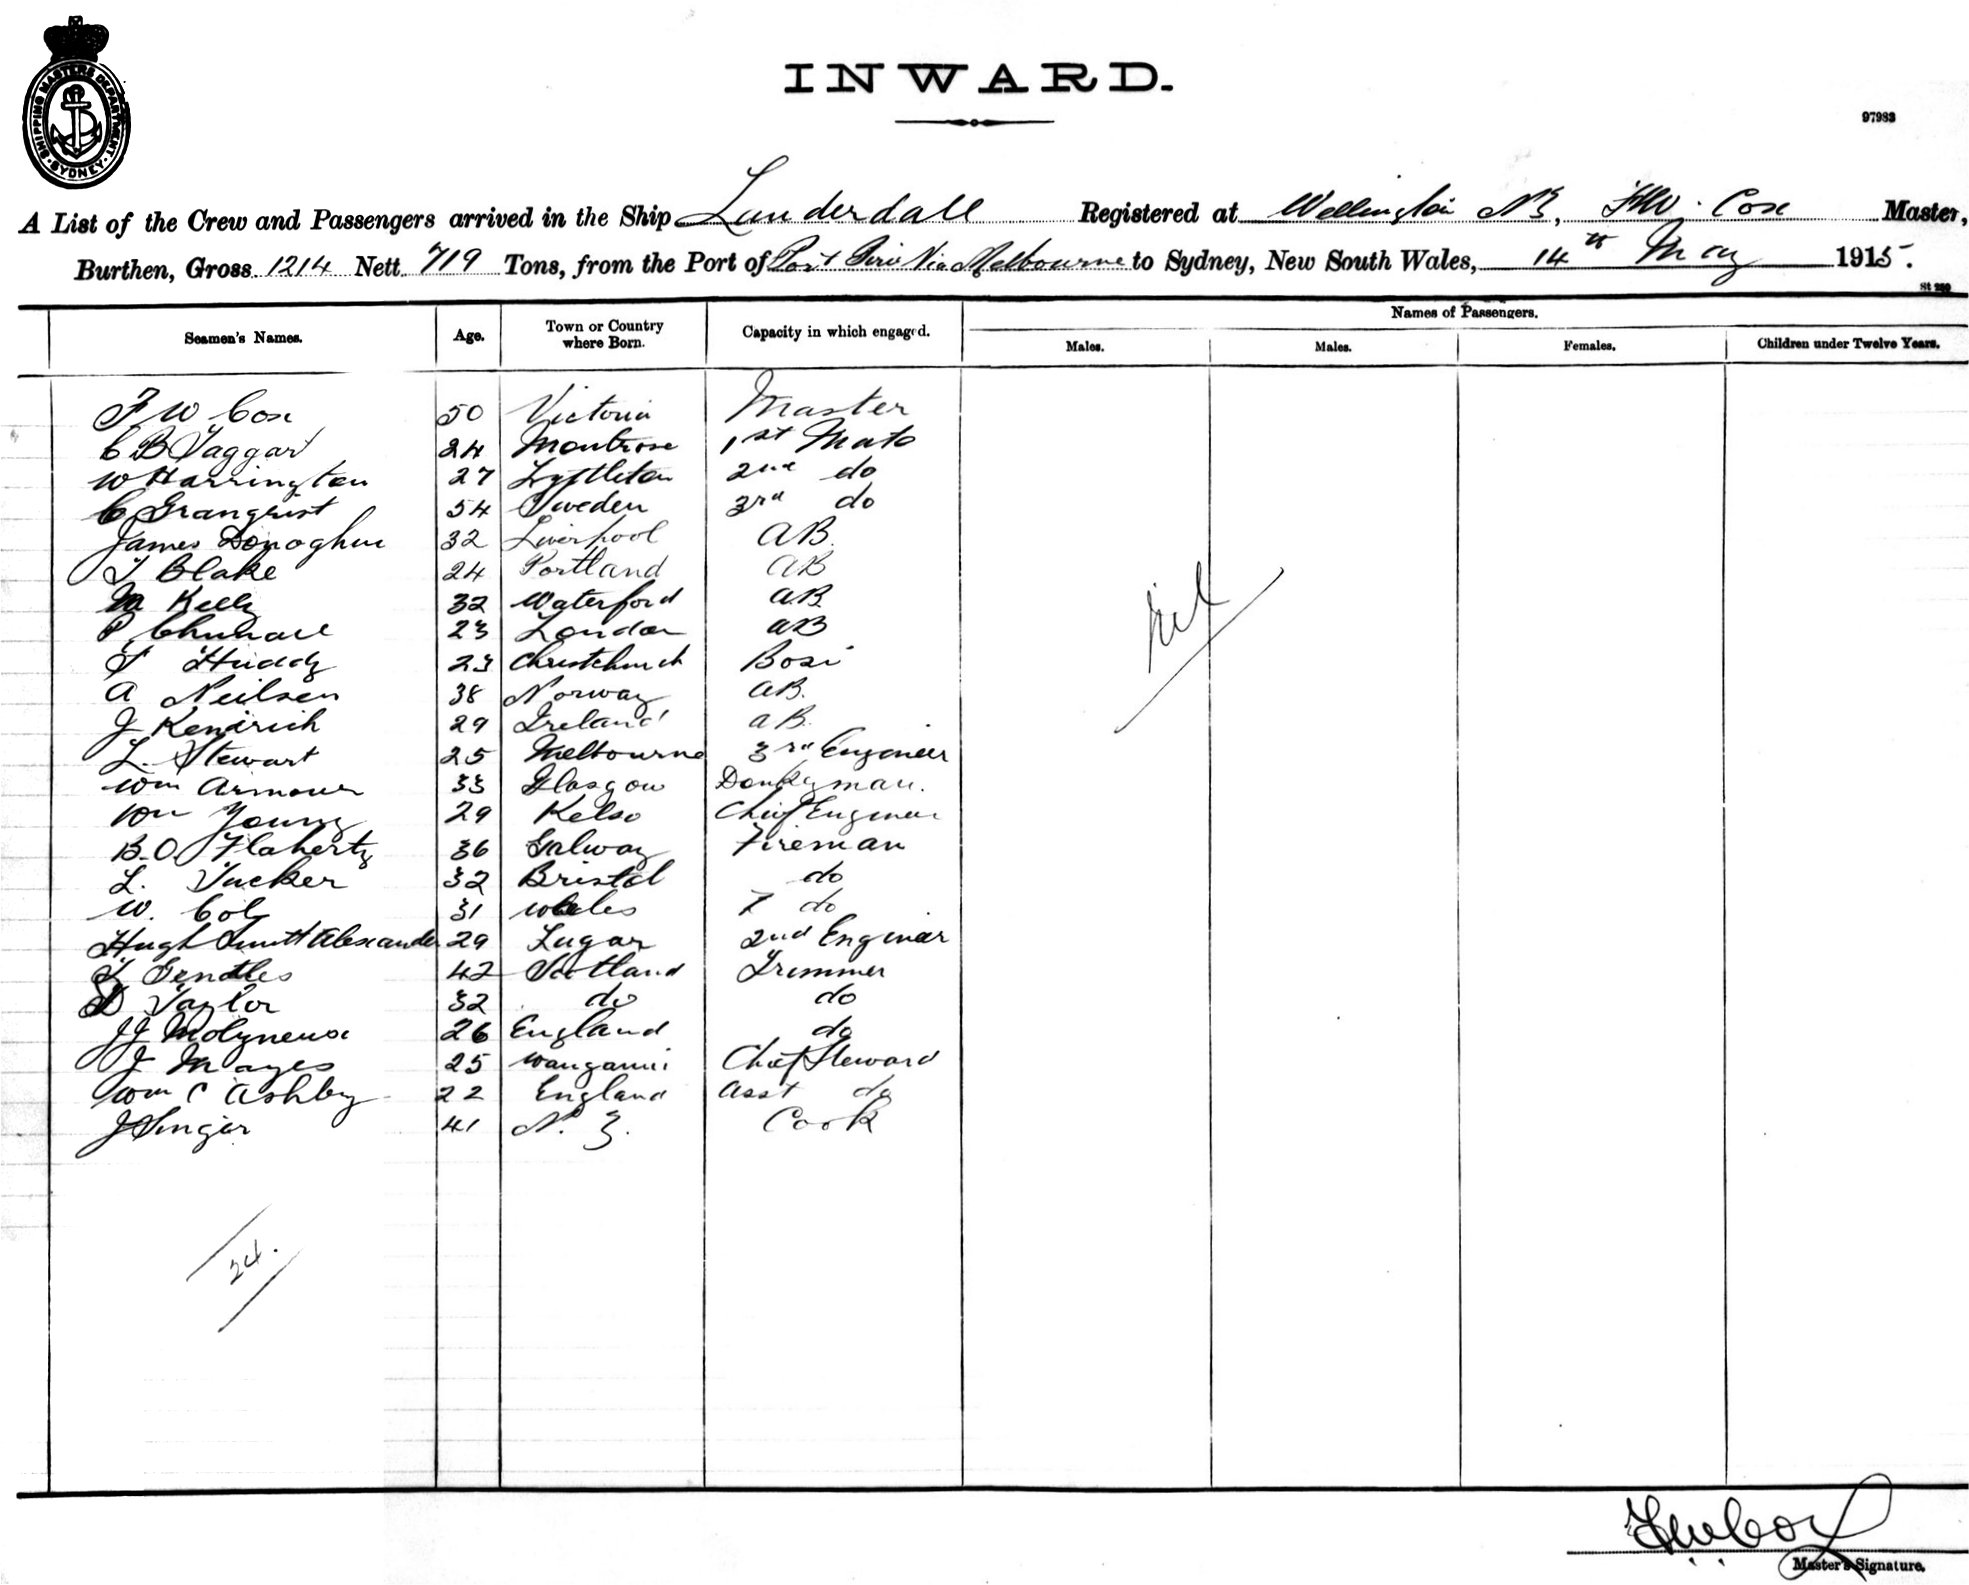 SHIPPING MASTERS DEPARTMENT · SYDNEY ·
INWARD.
97983
A List of the Crew and Passengers arrived in the Ship Lauderdall Registered at Wellington NZ, FW. Cox Master,
Burthen, Gross 1214 Nett 719 Tons, from the Port of Port Pirie Via Melbourne to Sydney, New South Wales, 14th May 1915.
St 289
Seamen's Names. Age. Town or Country where Born. Capacity in which engaged. Names of Passengers.
Males. Males. Females. Children under Twelve Years.
F W Cox 50 Victoria Master
C B Taggart 24 Montrose 1st Mate
W Harrington 27 Lyttleton 2nd do
C Granqvist 54 Sweden 3rd do
James Donoghue 32 Liverpool AB.
T Blake 24 Portland AB
M Kelly 32 Waterford AB
P 23 London AB
T Huddy 23 Christchurch Bosn
A Neilsen 38 Norway AB.
J Kendrich 29 Ireland AB.
L. Stewart 25 Melbourne 3rd Engineer
Wm Armour 33 Glasgow Donkyman.
Wm Young 29 Kelso Chief Engineer
B. O. Flaherty 36 Galway Fireman
L. Tucker 32 Bristol do
W. Coly 31 Wales do
Hugh Smith Alexander 29 Lugar 2nd Engineer
T Gendles 42 Scotland Trimmer
D Taylor 32 do do
JJ Molyneux 26 England do
J Mayes 25 Wanganui Chief Steward
Wm C Ashby 22 England Asst do
J Singer 41 N. Z. Cook
Nil
24.
FW Cox
Master's Signature.